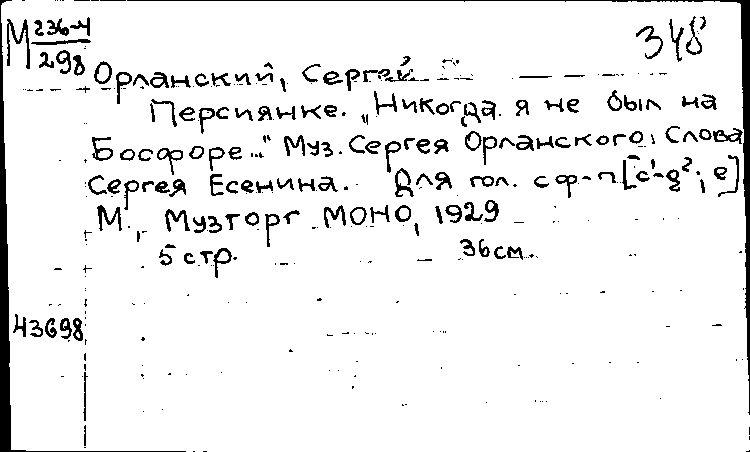 М 236-4 348
298
Орланский, Сергей
Персиянке. „Никогда я не был на
Босфоре..." Муз. Сергея Орланского, Слова
Сергея Есенина. Для гол. с ф-п [c¹-g²; e]
М., Музторг МОНО, 1929
5 стр. 36 см.
43698